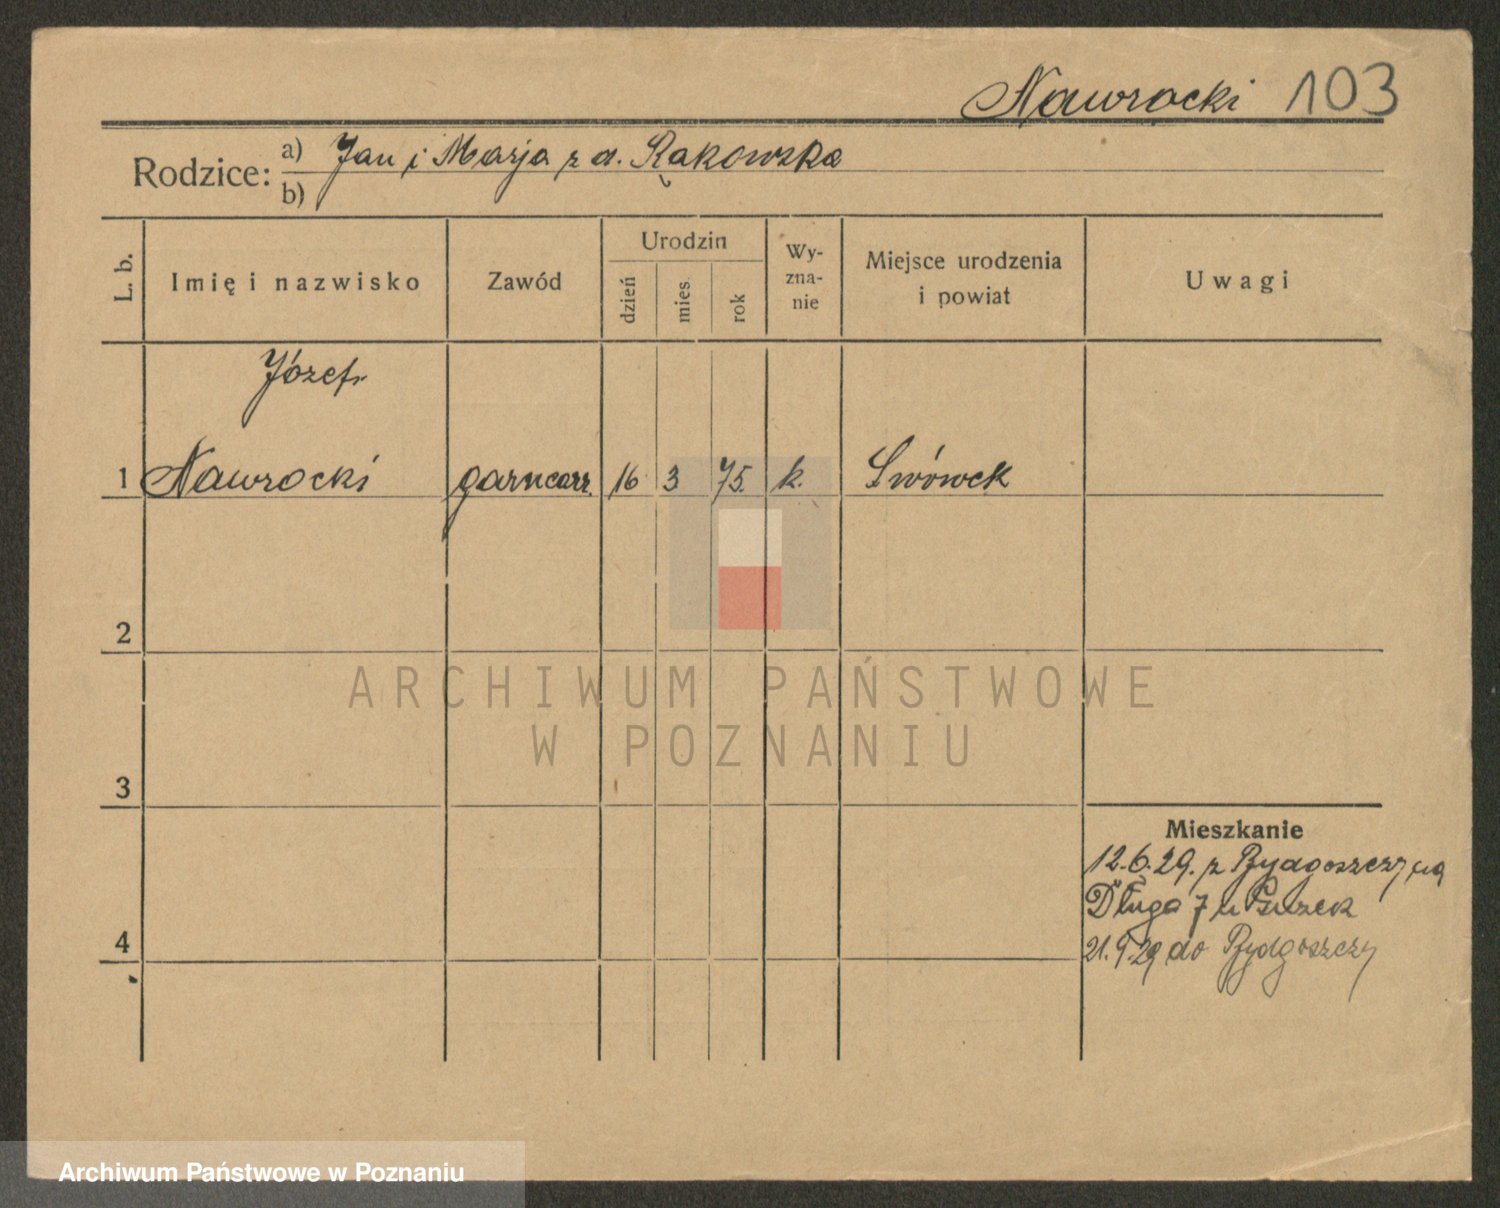 Nawrocki 103
Rodzice: a) Jan i Marja z d. Rąkowska
b)
L. b.
Imię i nazwisko
Zawód
Urodzin
dzień
mies.
rok
Wy-
zna-
nie
Miejsce urodzenia
i powiat
Uwagi
Józef
1 Nawrocki garncarz. 16 3 75. k. Lwówek
2
ARCHIWUM PAŃSTWOWE
W POZNANIU
3
Mieszkanie
12.6.29. z Bydgoszczy na
Długa 7 u
4
21.9.29 do Bydgoszczy
Archiwum Państwowe w Poznaniu